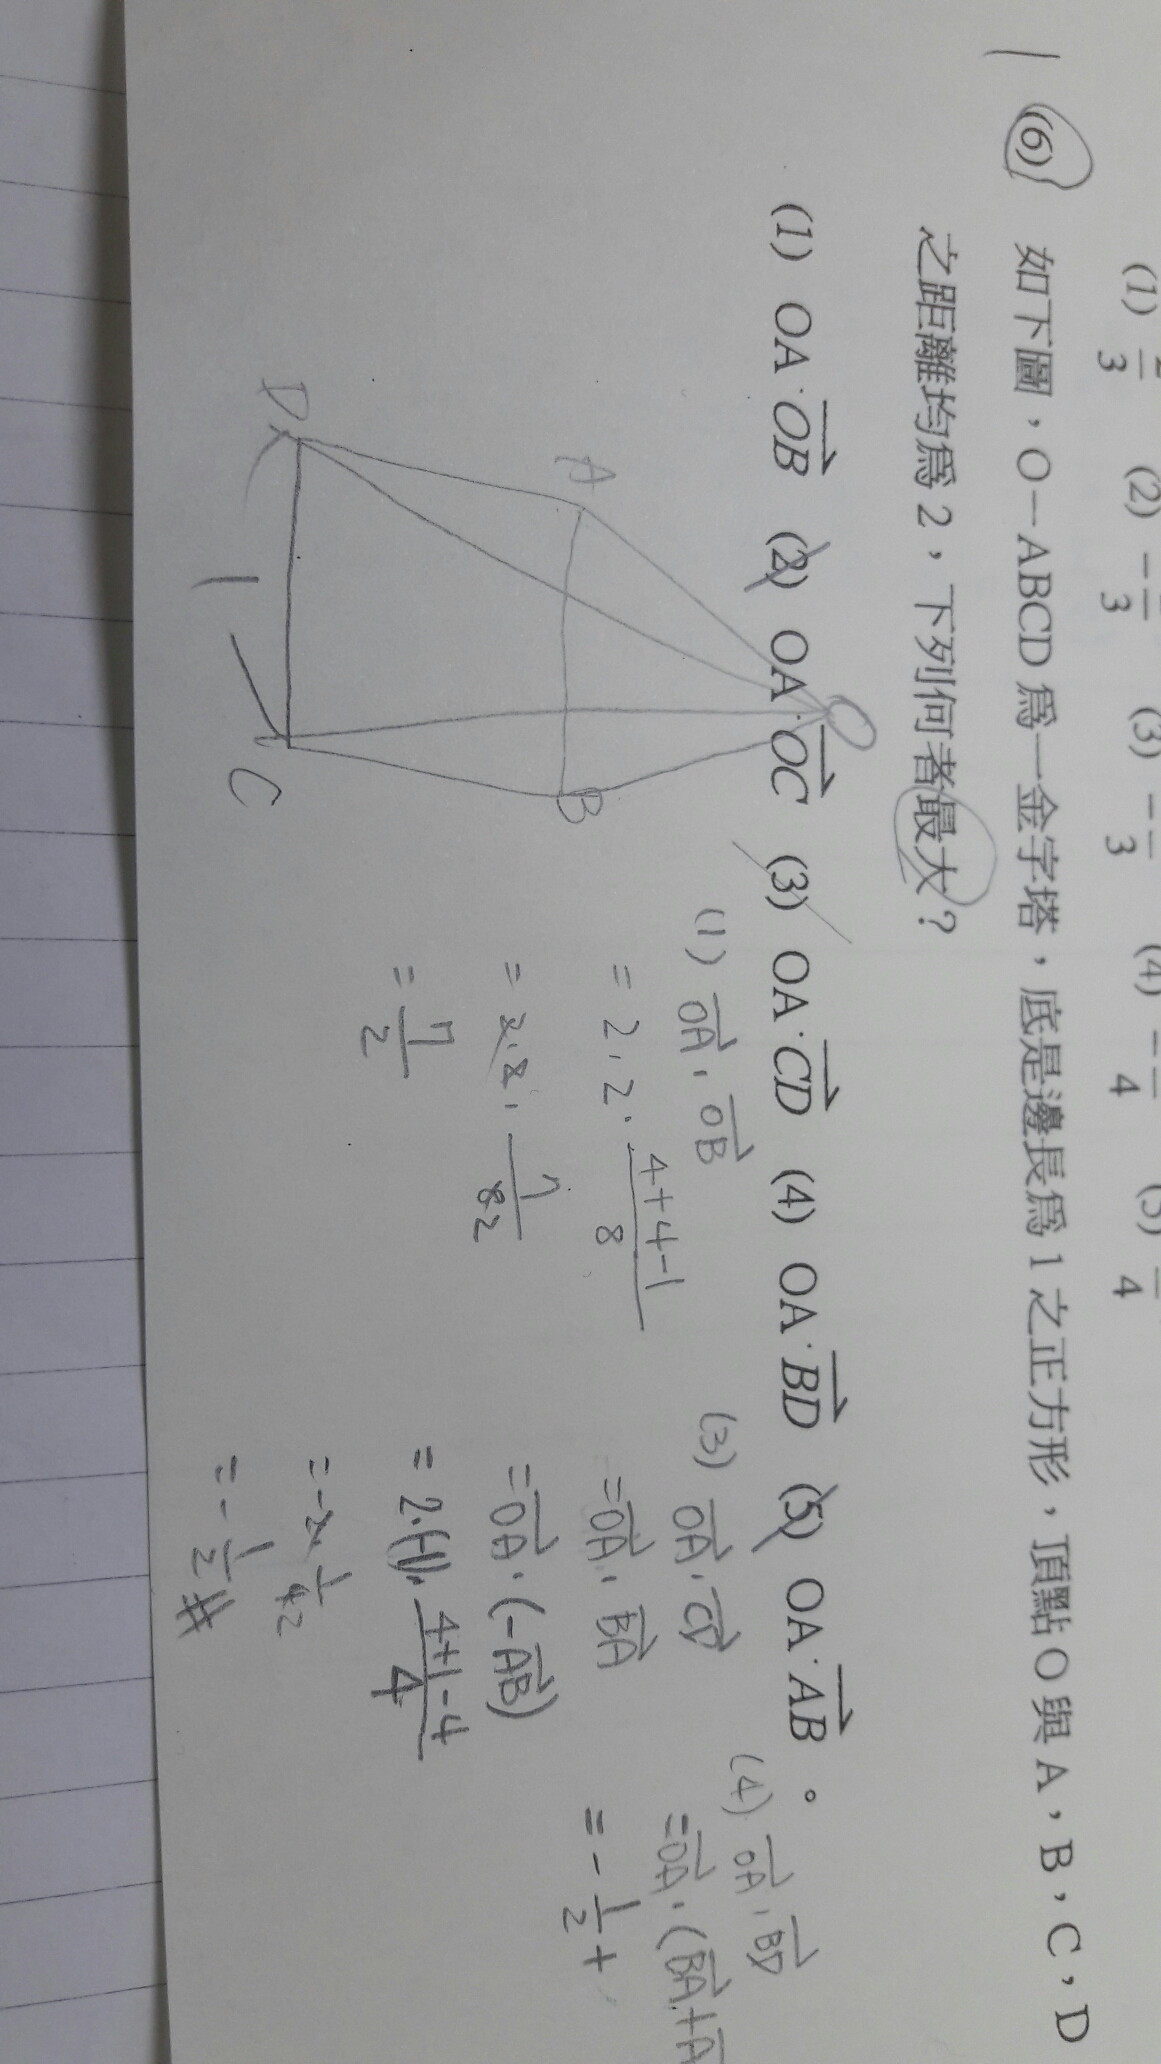 (1) 3 (2) - 3 (3) - 3 (4) - 4 (5) 4
(6) 如下圖，O－ABCD 爲一金字塔，底是邊長爲 1 之正方形，頂點 O 與 A，B，C，D
之距離均爲 2，下列何者最大？
(1) OA·OB (2) OA·OC (3) OA·CD (4) OA·BD (5) OA·AB 。
O
A
B
C
D
1
(1) OA·OB
= 2·2· 4+4-1/8
= 2·2· 7/82
= 7/2
(3) OA·CD
= OA·BA
= OA·(-AB)
= 2·(-1)· 4+1-4/4
= -2· 1/42
= - 1/2 #
(4) OA·BD
= OA·(BA+A
= - 1/2 +